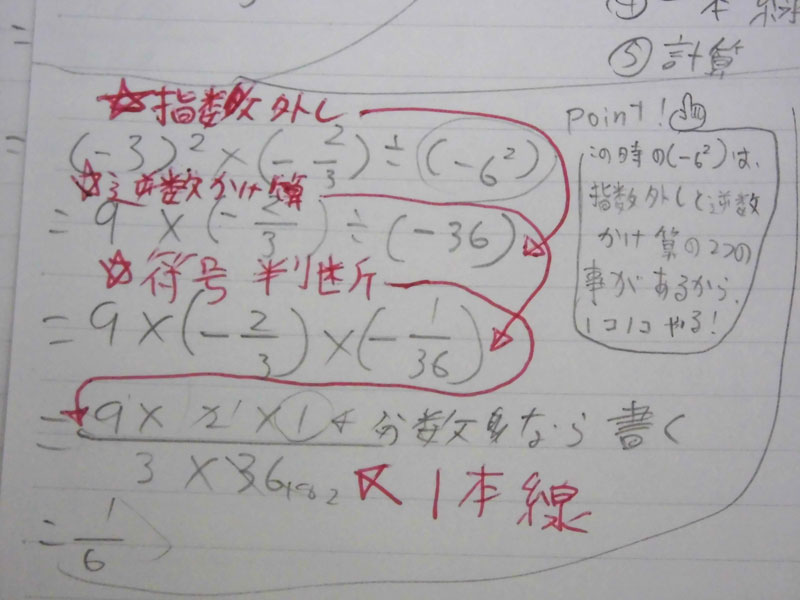 ④一本線
⑤計算
☆指数外し
(-3)² × (-2/3) ÷ (-6²)
☆逆数かけ算
= 9 × (-2/3) ÷ (-36)
☆符号判断
= 9 × (-2/3) × (-1/36)
= 9 × 2 × 1 / 3 × 36 分数なら書く
1本線
= 1/6
point!
この時の(-6²)は、
指数外しと逆数
かけ算の2つの
事があるから、
1コ1コやる!